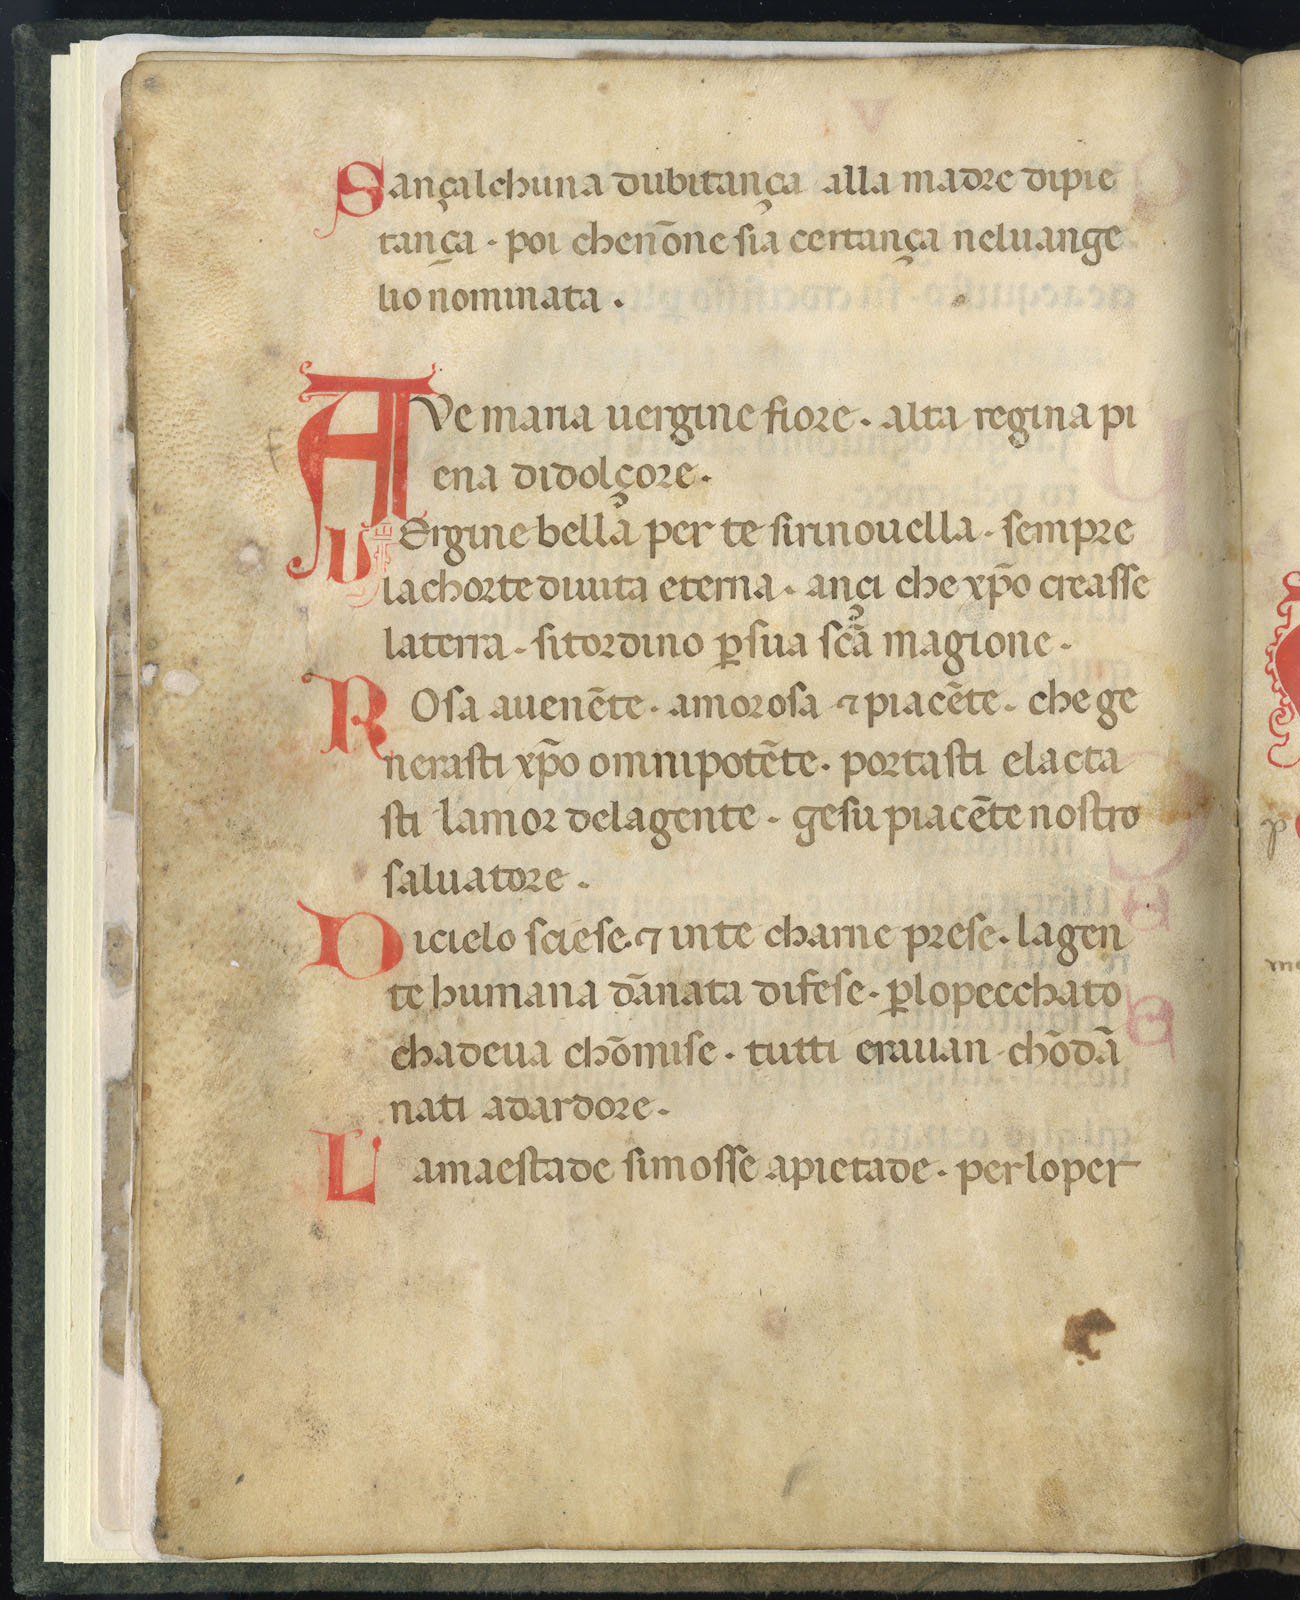 Sançalchuna dubitança alla madre dipie
tança · poi chenōne sia certança neluange
lio nominata ·
AVe maria uergine fiore · alta regina pi
ena didolçore ·
UErgine bella per te sirinouella · sempre
lachorte diuita eterna · ançi che xp̄o creasse
laterra · sitordino ꝑsua sc̄a magione ·
ROsa auenēte · amorosa ⁊ piacēte · che ge
nerasti xp̄o omnipotēte · portasti elacta
sti lamor delagente · gesu piacēte nostro
saluatore ·
Dicielo sciese · ⁊ inte charne prese · lagen
te humana dānata difese · ꝑlopecchato
chadeua chōmise · tutti erauan chōdā
nati adardore ·
Lamaestade simosse apietade · per loper